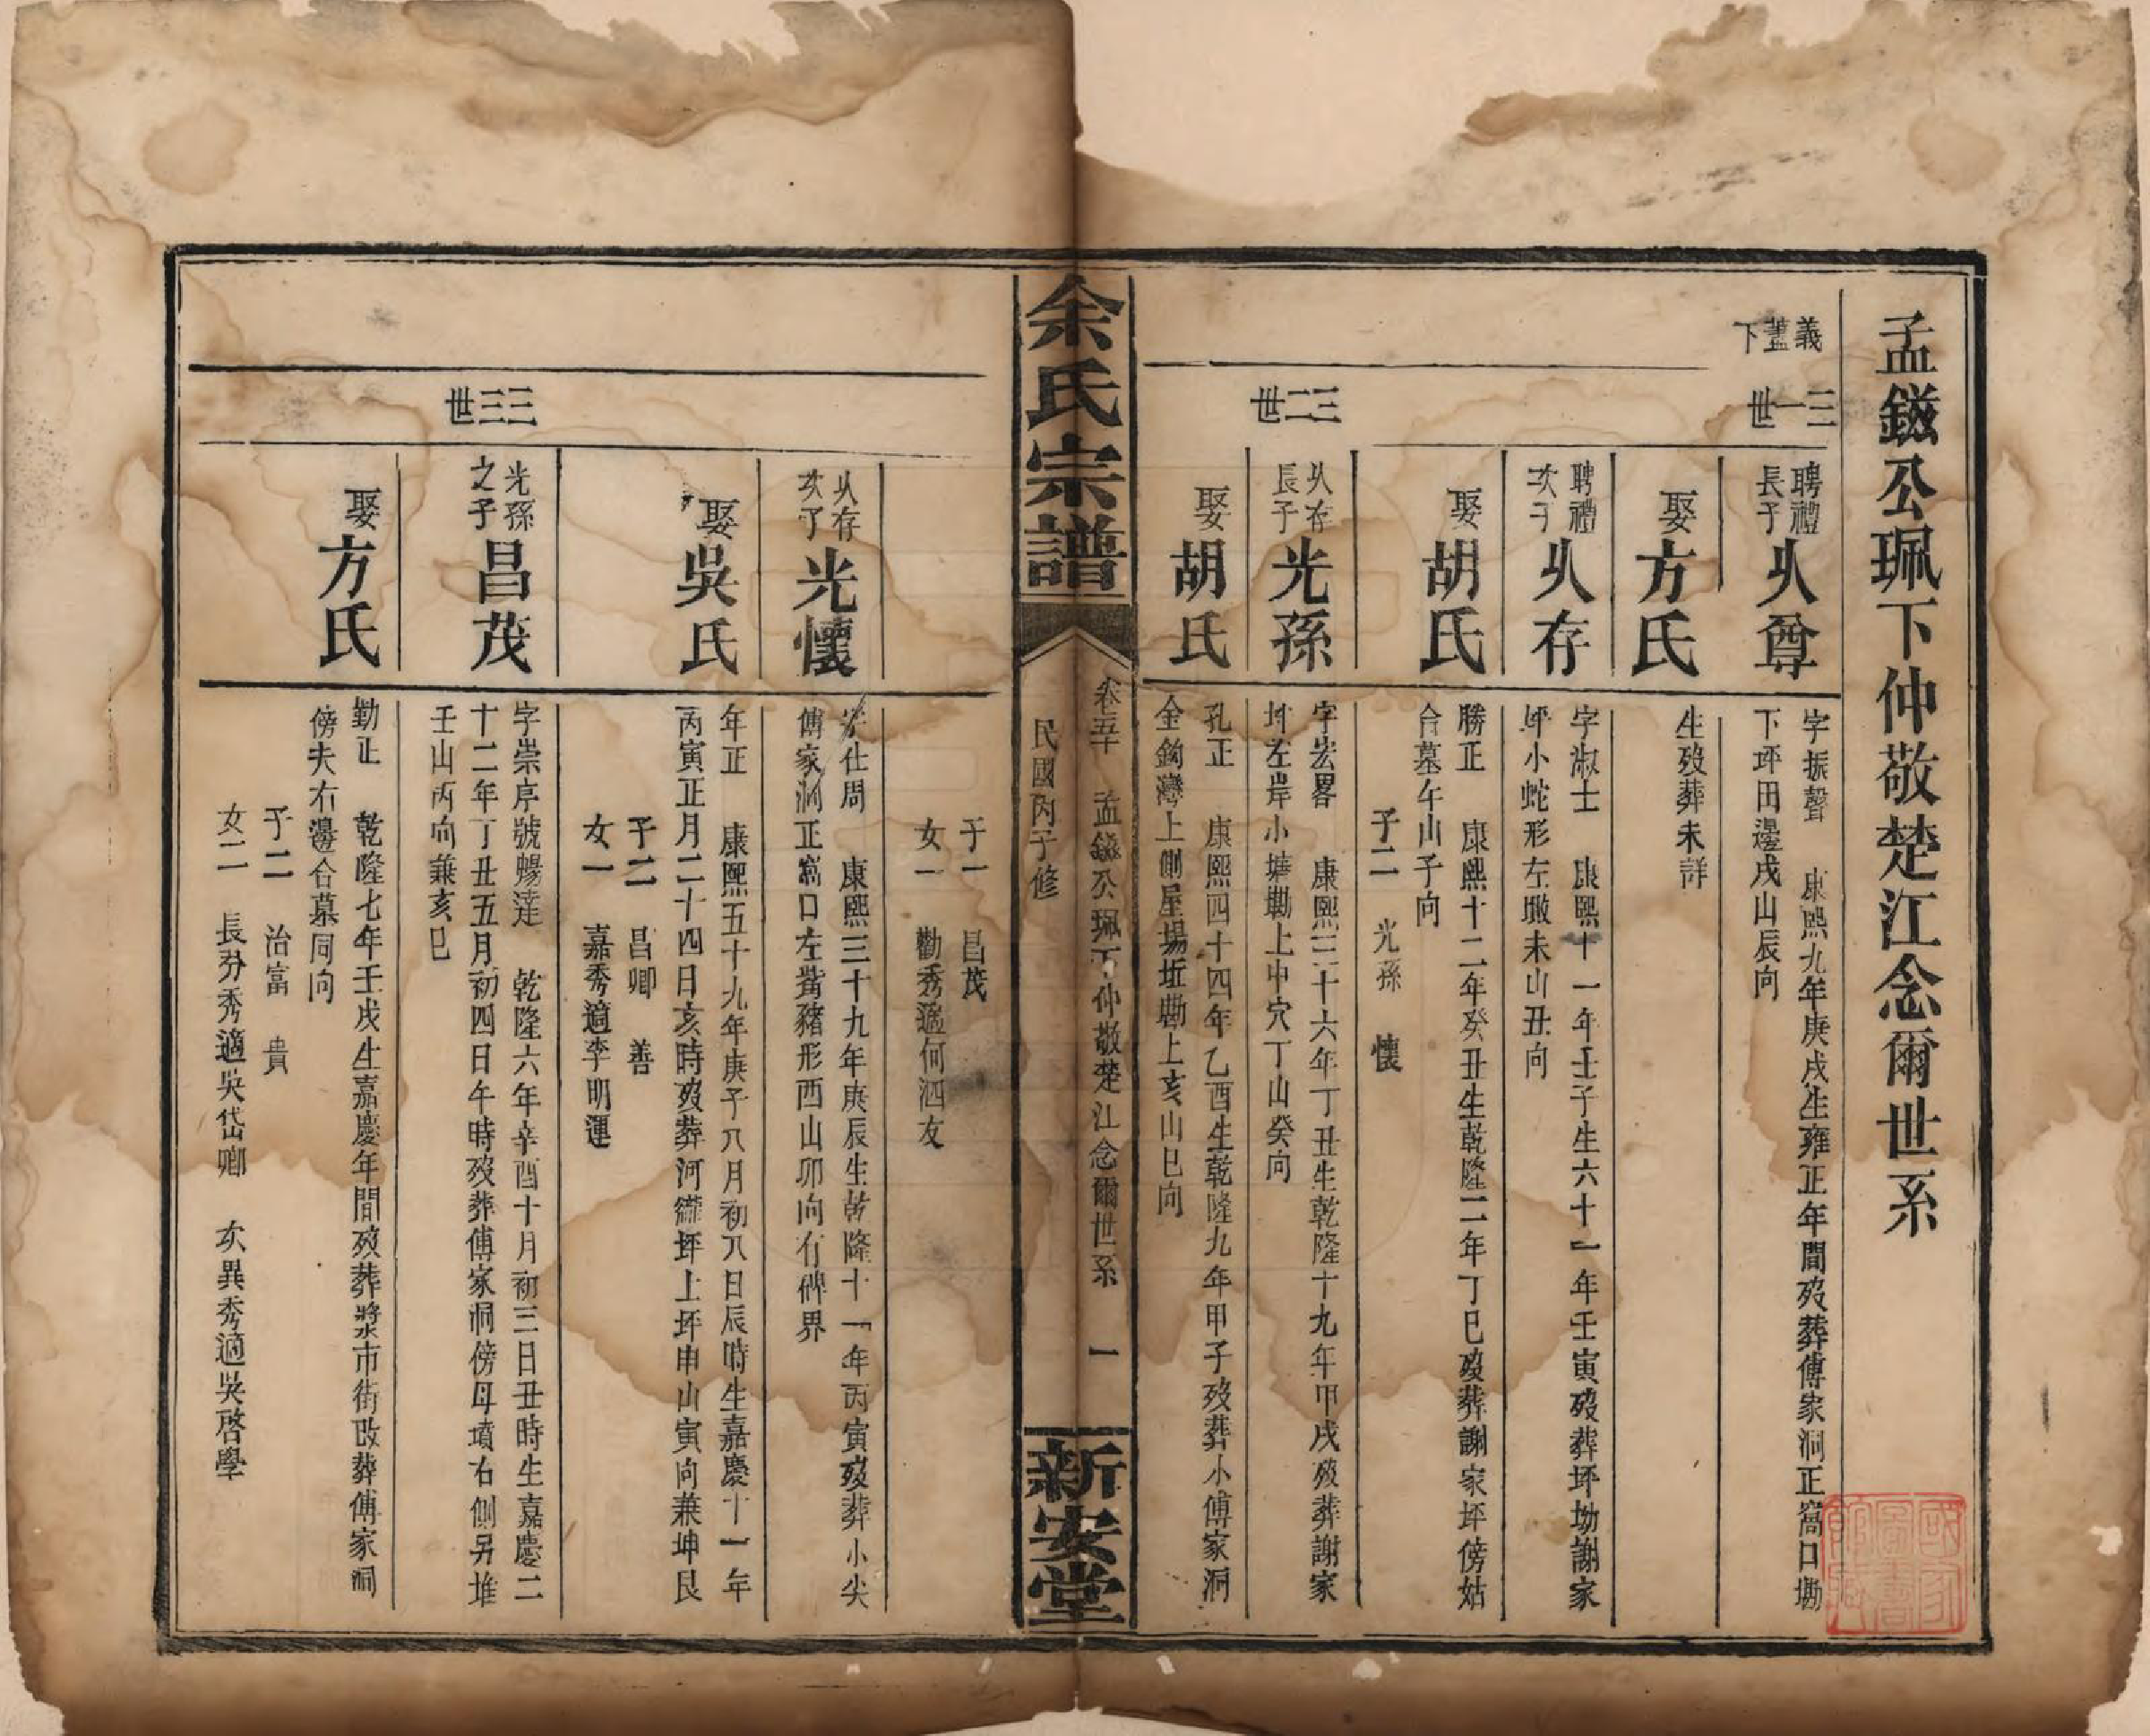 孟鎡公珮下仲敬楚江念爾世系
義藍下
三十一世
聘禮長子
乆尊
字振聲 康熙九年庚戌生雍正年間歿葬傅家洞正窩口墈
下坪田邊戌山辰向
娶方氏
生歿葬未詳
聘禮次子
乆存
字淑士 康熙十一年壬子生六十一年壬寅歿葬坪坳謝家
坪小蛇形左墩未山丑向
娶胡氏
勝正 康熙十二年癸丑生乾隆二年丁巳歿葬謝家坪傍姑
合墓午山子向
子二 光孫 懷
三十二世
乆存長子
光孫
字宏畧 康熙三十六年丁丑生乾隆十九年甲戌歿葬謝家
坪左岸小塘墈上中穴丁山癸向
娶胡氏
孔正 康熙四十四年乙酉生乾隆九年甲子歿葬小傅家洞
金鉤灣上側屋場坵墈上亥山巳向
余氏宗譜
卷五 孟鎡公珮下仲敬楚江念爾世系 一
民國丙子修
新安堂
子一 昌茂
女一 勸秀適何泗友
乆存次子
光懷
字仕周 康熙三十九年庚辰生乾隆十一年丙寅歿葬小尖
傅家洞正窩口左黃豬形酉山卯向有碑界
娶吳氏
年正 康熙五十九年庚子八月初八日辰時生嘉慶十一年
丙寅正月二十四日亥時歿葬河坪上坪申山寅向兼坤艮
子二 昌卿 善
女一 嘉秀適李明運
三十三世
光孫之子
昌茂
字崇序號暢達 乾隆六年辛酉十月初三日丑時生嘉慶二
十二年丁丑五月初四日午時歿葬傅家洞傍母墳右側另堆
壬山丙向兼亥巳
娶方氏
勤正 乾隆七年壬戌生嘉慶年間歿葬漿市街改葬傅家洞
傍夫右邊合墓同向
子二 治富 貴
女二 長芬秀適吳岱卿 次異秀適吳啓學